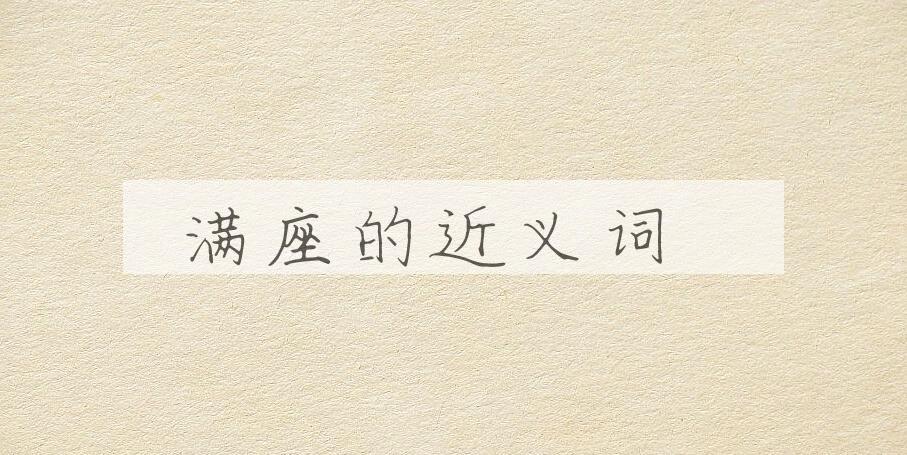 满座的近义词